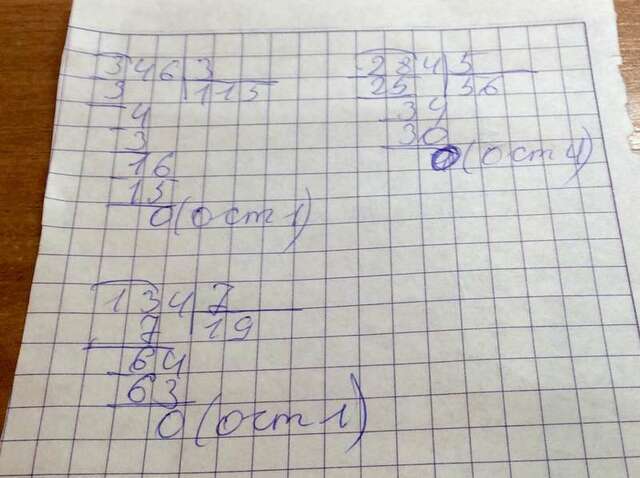 346 3
3 115
4
3
16
15
0(ост 1)
284 5
25 56
34
30
0(ост 4)
134 7
7 19
64
63
0(ост 1)